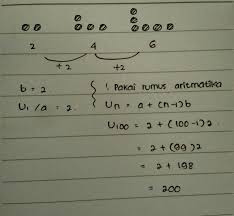 2 4 6
+2 +2
b = 2
U₁ / a = 2
! Pakai rumus aritmatika
Un = a + (n-1) b
U₁₀₀ = 2 + (100-1) 2
= 2 + (99) 2
= 2 + 198
= 200